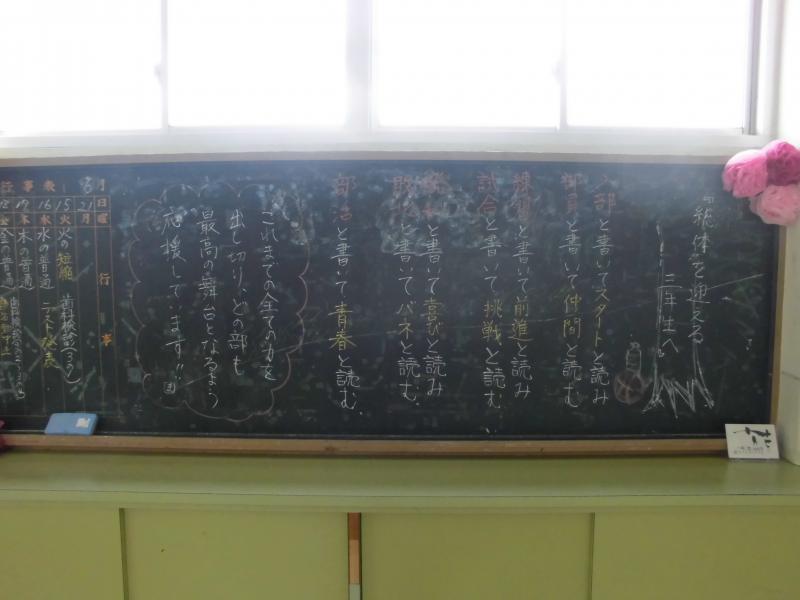 『総体を迎える
三年生へ
入部と書いてスタートと読み
部員と書いて仲間と読む
練習と書いて前進と読み
試合と書いて挑戦と読む…
勝利と書いて喜びと読み
敗北と書いてバネと読む
部活と書いて青春と読む
これまでの全ての力を
出し切り、どの部も
最高の舞台となるよう
応援しています!!
月日曜行事
6
21月
15火火の短縮 歯科検診
16水水の普通 テスト発表
17木木の普通
18金金の普通
歳
事
行